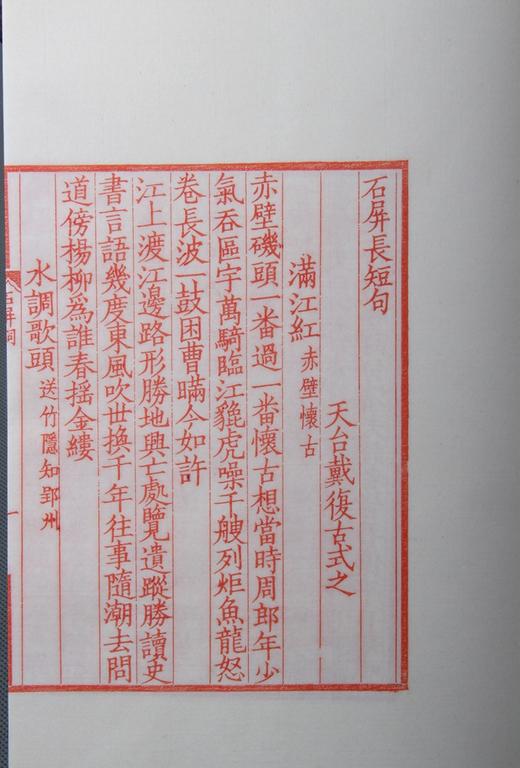 石屏長短句
天台戴復古式之
滿江紅 赤壁懷古
赤壁磯頭一番過一番懷古想當時周郎年少
氣吞區宇萬騎臨江貔虎噪千艘列炬魚龍怒
卷長波一鼓困曹瞞今如許
江上渡江邊路形勝地興亡處覽遺蹤勝讀史
書言語幾度東風吹世換千年往事隨潮去問
道傍楊柳為誰春搖金縷
水調歌頭 送竹隱知郢州
石屏詞
一